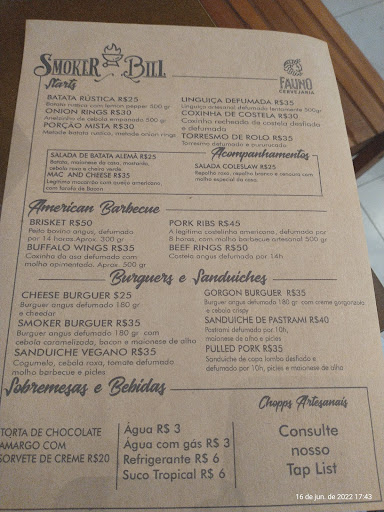 SMOKER BILL
FAUNO
CERVEJARIA
Starts
BATATA RÚSTICA R$25
Batata rustica com lemon pepper 500 gr
ONION RINGS R$30
Anelzinho de cebola empanado 500 gr
PORÇÃO MISTA R$30
Metade batata rustica, metade onion rings
LINGUIÇA DEFUMADA R$35
Linguiça artesanal defumada lentamente 500gr
COXINHA DE COSTELA R$30
Coxinha recheada da costela desfiada
e defumada
TORRESMO DE ROLO R$35
Torresmo defumado e pururucado
Acompanhamentos
SALADA DE BATATA ALEMÃ R$25
Batata, maionese da casa, mostarda,
cebola roxa e cheiro verde
MAC AND CHEESE R$35
Legitimo macarrão com queijo americano,
com farofa de Bacon
SALADA COLESLAW R$25
Repolho roxo, repolho branco e cenoura com
molho especial da casa.
American Barbecue
BRISKET R$50
Peito bovino angus, defumado
por 14 horas Aprox. 300 gr
BUFFALO WINGS R$35
Coxinha da asa defumada com
molho apimentado. Aprox. 500 gr
PORK RIBS R$45
A legitima costelinha americana, defumada por
8 horas, com molho barbecue artesanal 500 gr
BEEF RINGS R$50
Costela angus defumada por 14h
Burguers e Sanduiches
CHEESE BURGUER $25
Burguer angus defumado 180 gr
e cheedar
SMOKER BURGUER R$35
Burguer angus defumado 180 gr com
cebola caramelizada, bacon e maionese de alho
SANDUICHE VEGANO R$35
Cogumelo, cebola roxa, tomate defumado
molho barbecue e picles
GORGON BURGUER R$35
Burguer angus defumado 180 gr com creme gorgonzola
e cebola crispy
SANDUICHE DE PASTRAMI R$40
Pastrami defumado por 10h,
maionese de alho e picles
PULLED PORK R$35
Sanduiche de copa lombo desfiado e
defumado por 10h, picles e maionese de alho
Sobremesas e Bebidas
TORTA DE CHOCOLATE
AMARGO COM
SORVETE DE CREME R$20
Água R$ 3
Água com gás R$ 3
Refrigerante R$ 6
Suco Tropical R$ 6
Chopps Artesanais
Consulte
nosso
Tap List
16 de jun. de 2022 17:43